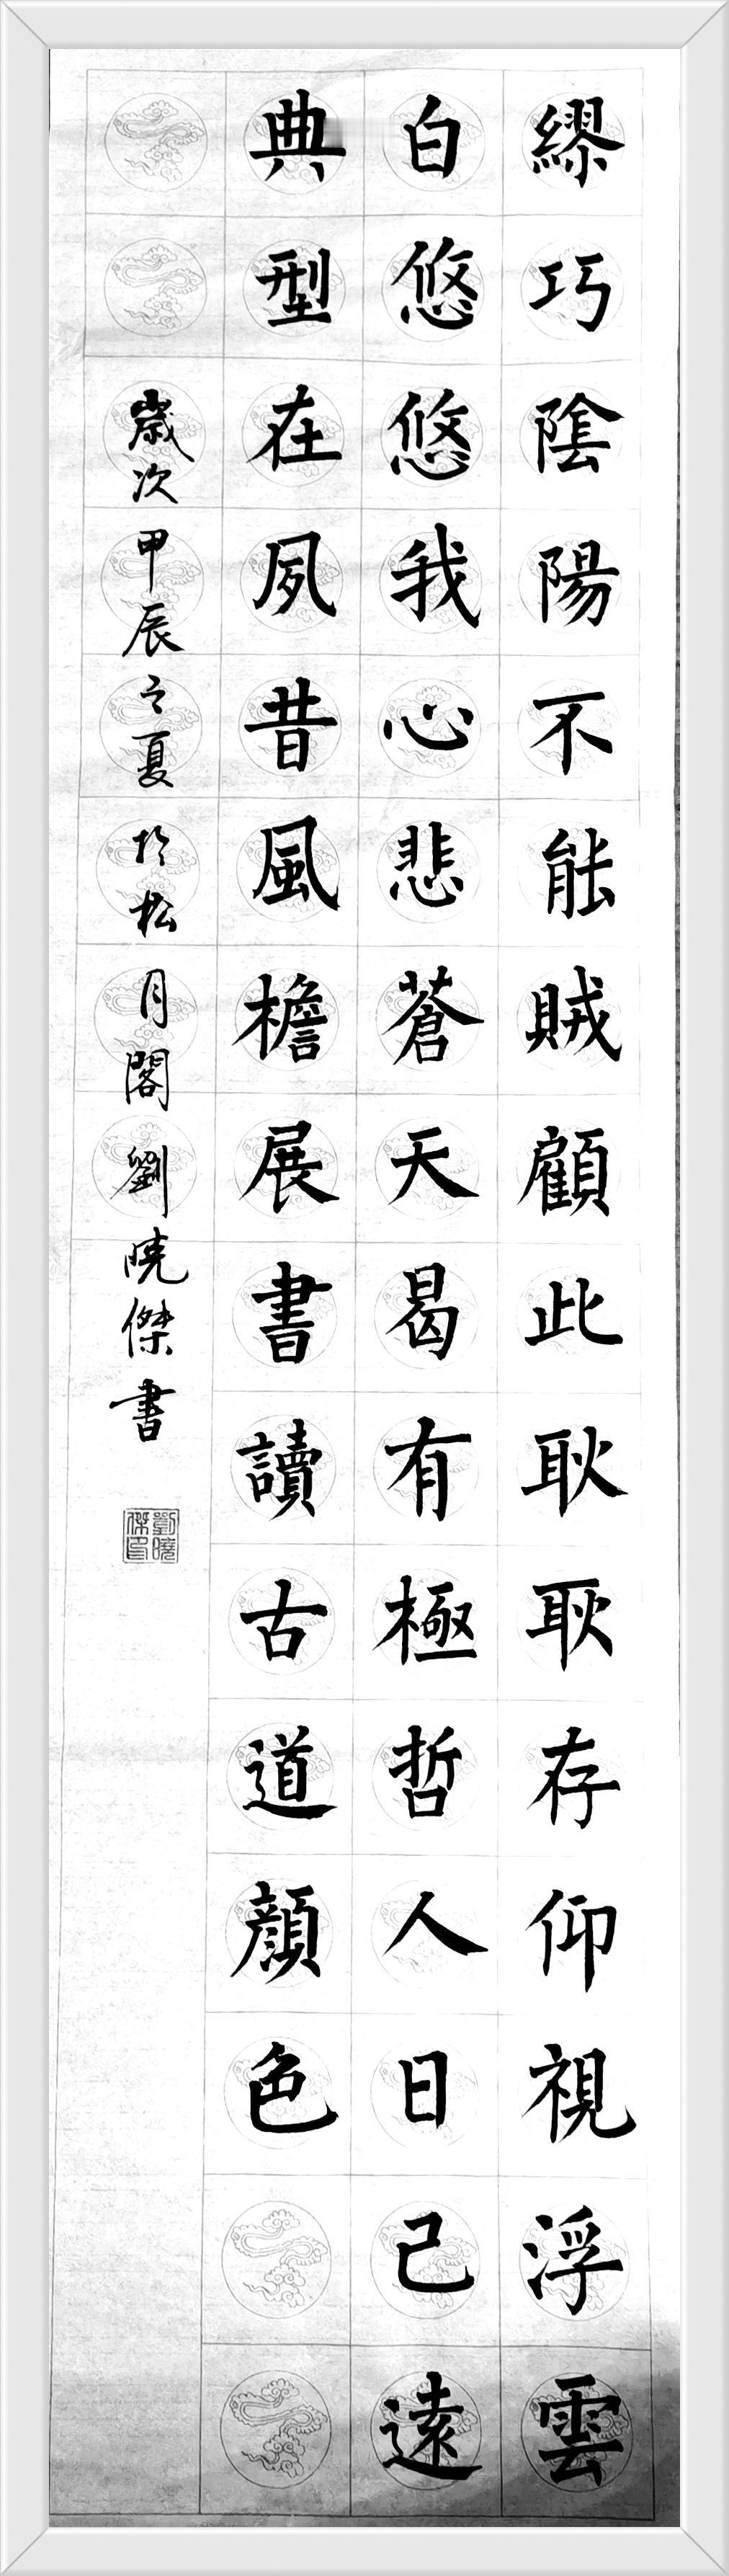 繆巧陰陽不能賊顧此耿耿存仰視浮雲
白悠悠我心悲蒼天曷有極哲人日已遠
典型在夙昔風檐展書讀古道顏色
歲次甲辰之夏於松月閣劉曉傑書
劉曉傑印